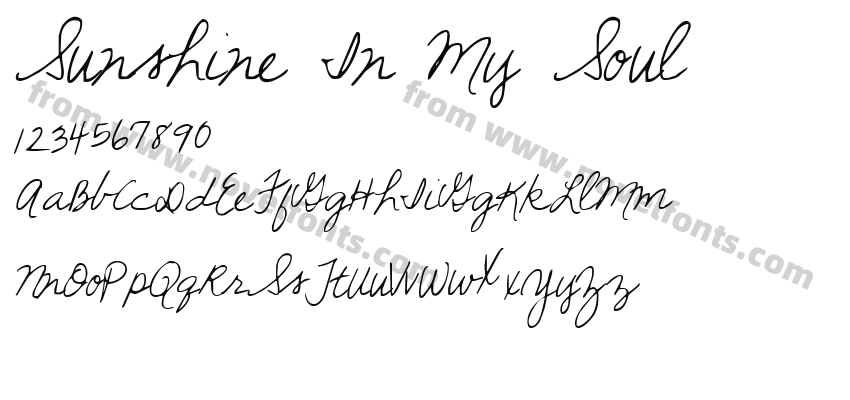 Sunshine In My Soul
1234567890
AaBbCcDdEeFfGgHhIiGgKkLlMm
NnOoPpQqRrSsTtUuVvWwXxYyZz
from www.novelfonts.com
from www.novelfonts.com